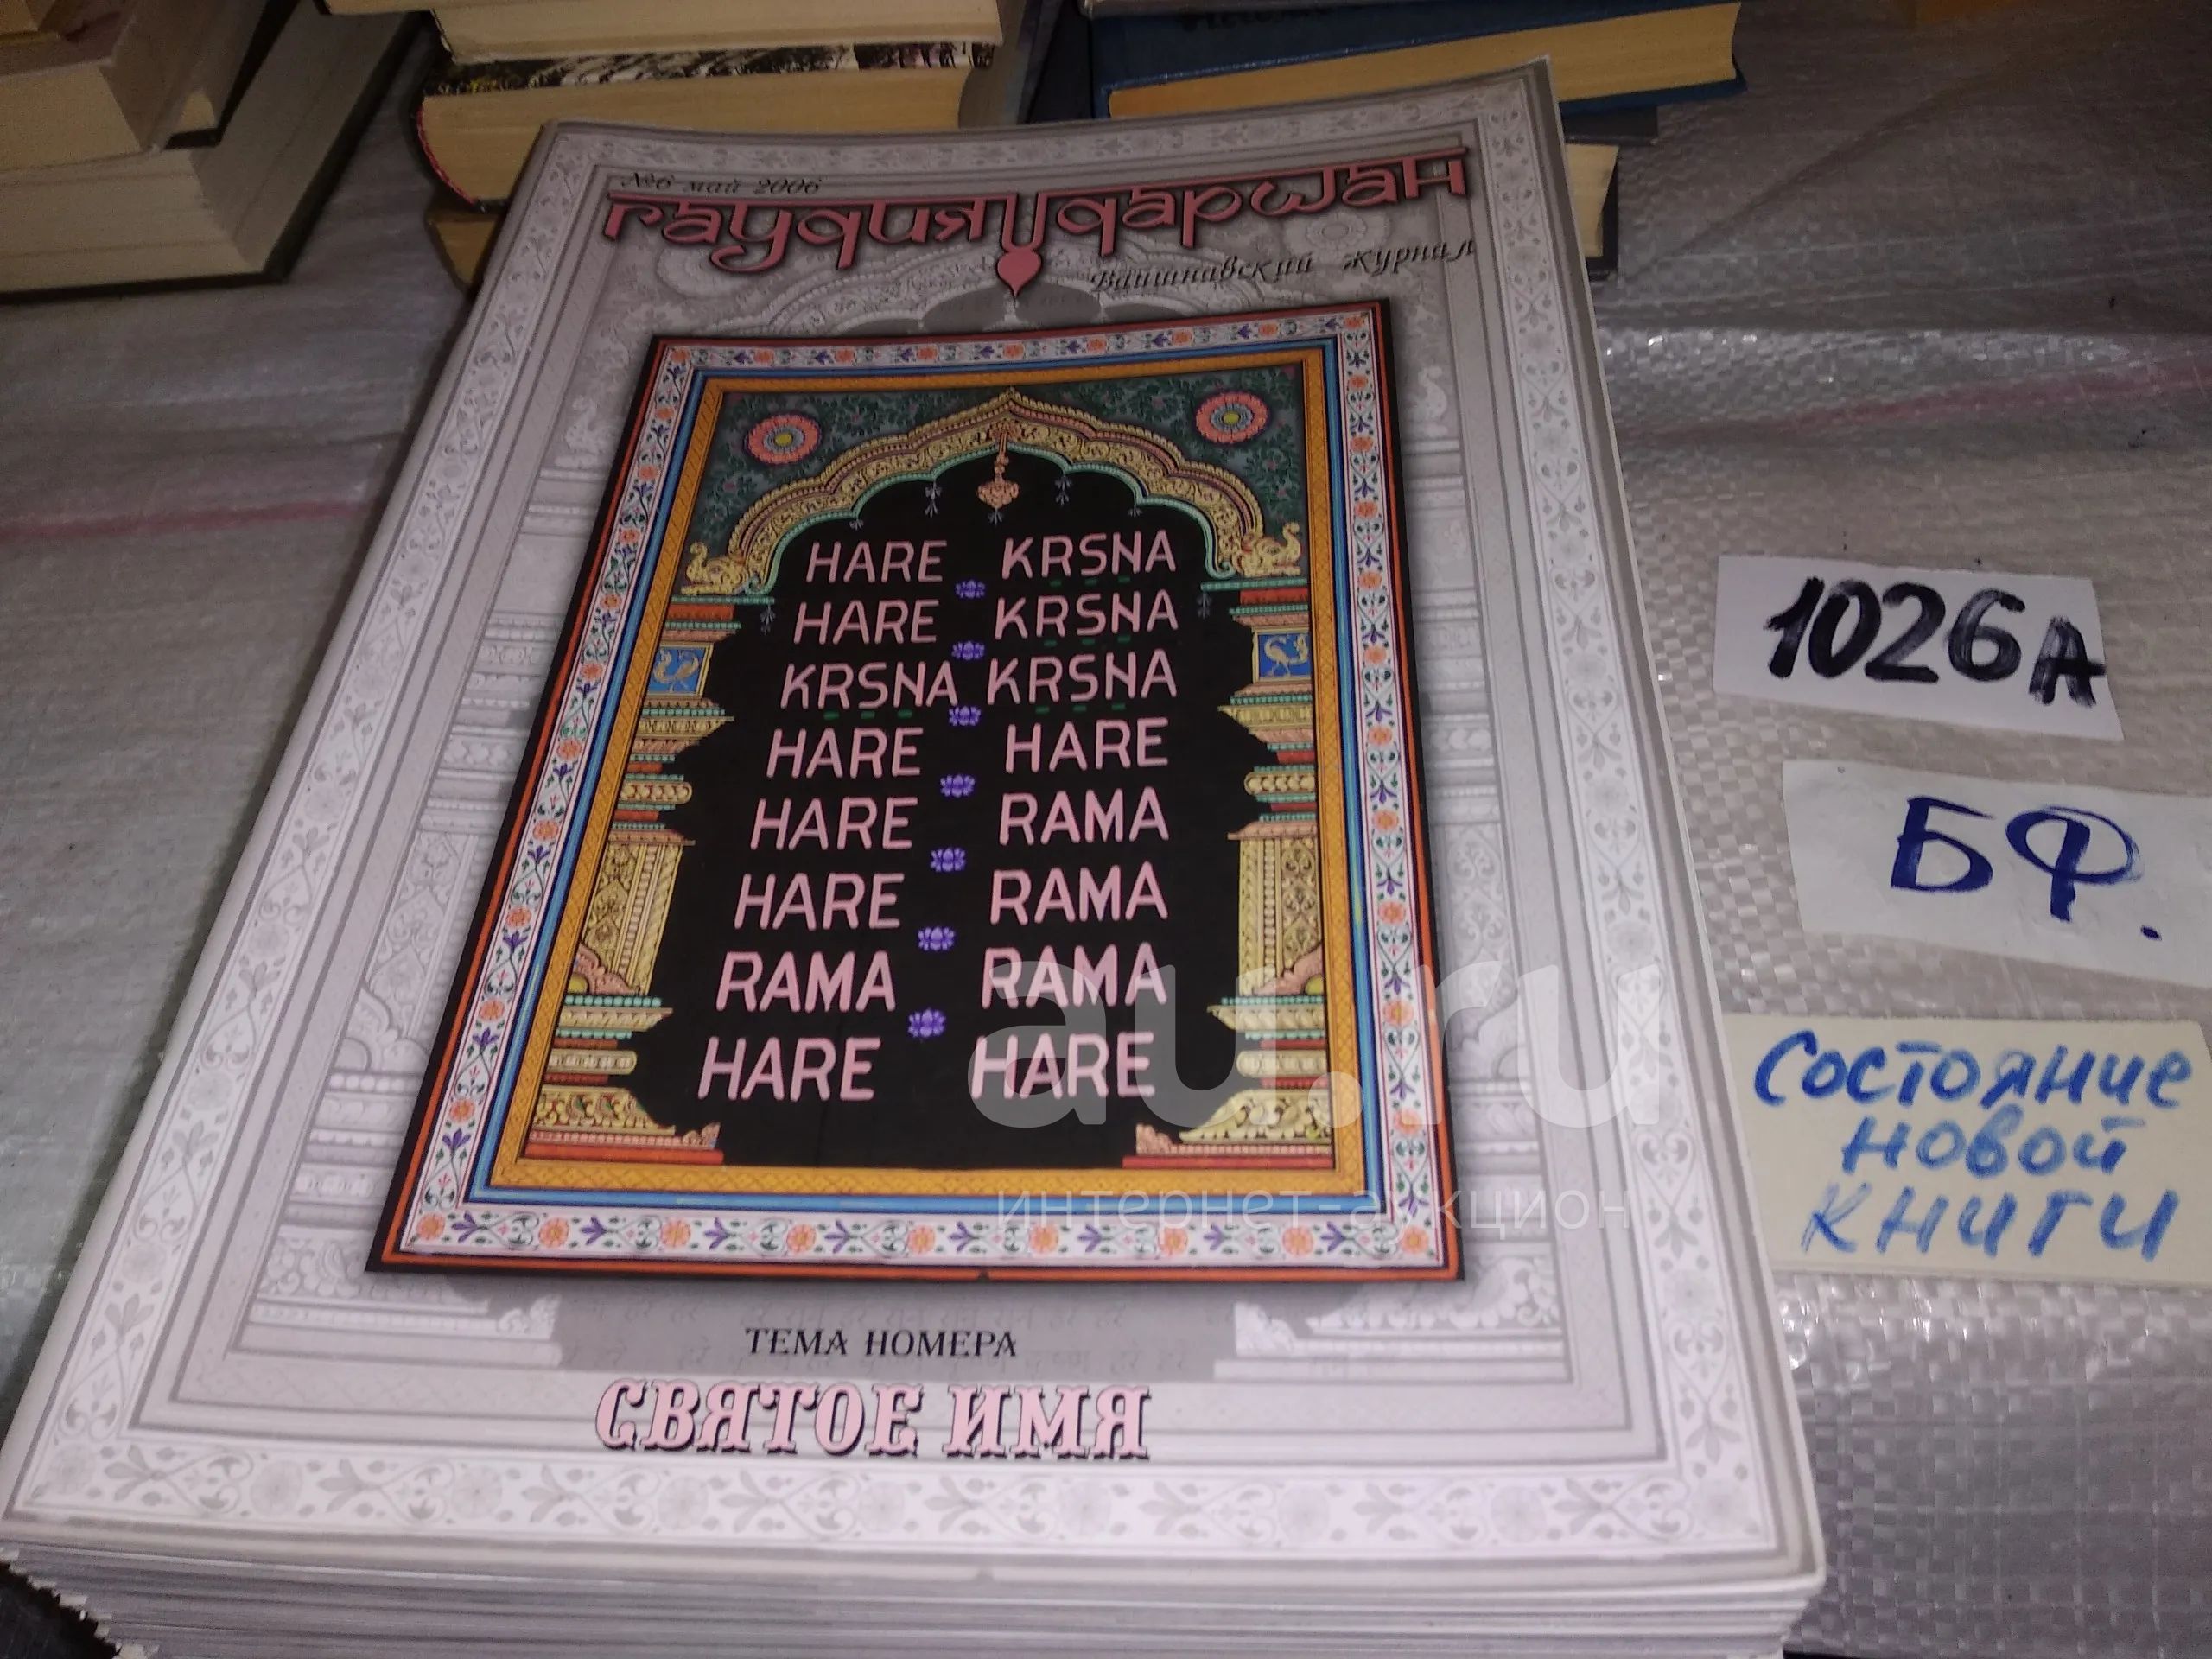 №6 май 2006
гаудия даршан
Вайшнавский журнал
HARE KRSNA
HARE KRSNA
KRSNA KRSNA
HARE HARE
HARE RAMA
HARE RAMA
RAMA RAMA
HARE HARE
ТЕМА НОМЕРА
СВЯТОЕ ИМЯ
1026А
БФ.
Состояние
новой
книги
au.ru
интернет-аукцион